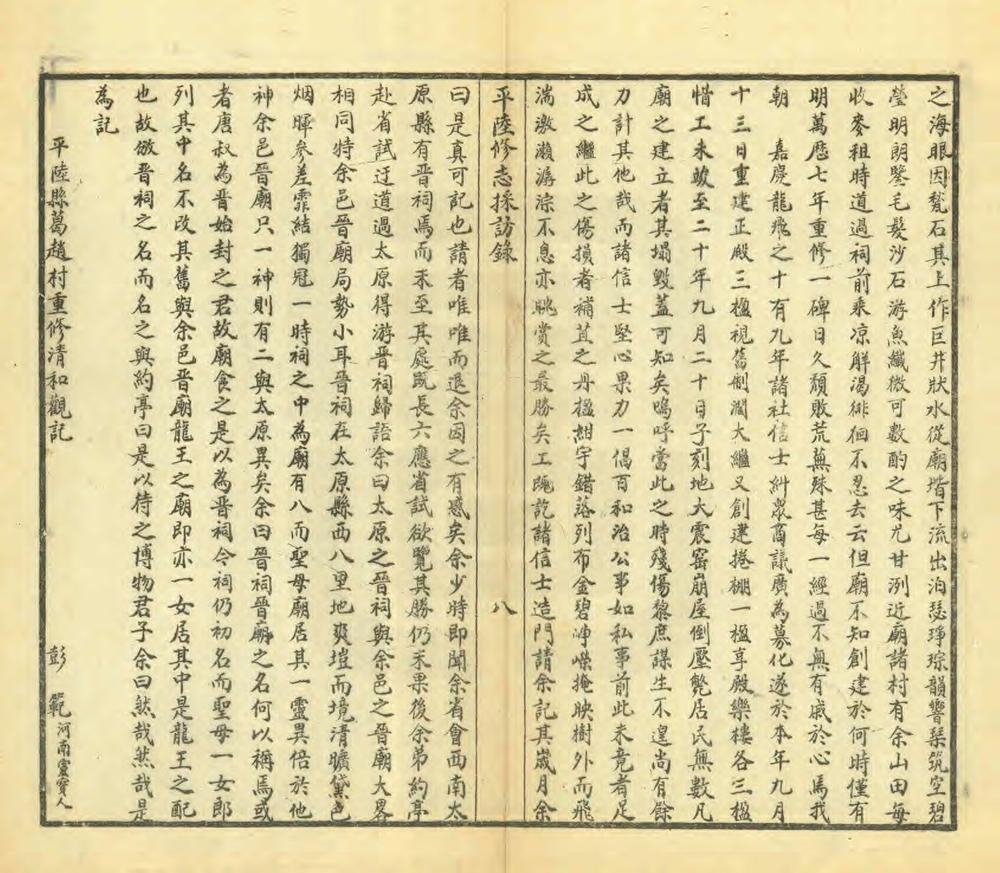 之海眼因甃石其上作巨井狀水從廟堦下流出泊瑟琤琮韻響琹筑空碧
瑩明朗鑒毛髮沙石游魚纖微可數酌之味尤甘洌近廟諸村有余山田每
收麥租時道過祠前乘凉觧渴徘徊不忍去云但廟不知創建於何時僅有
明萬歷七年重修一碑日久頹敗荒蕪殊甚每一經過不無有戚於心焉我
朝　嘉慶龍飛之十有九年諸社信士糾眾商議廣為募化遂於本年九月
十三日重建正殿三楹視舊制濶大繼又創建捲棚一楹享殿樂樓各三楹
惜工未竣至二十年九月二十日子刻地大震窑崩屋倒壓斃居民無數凡
廟之建立者其塌毀蓋可知矣嗚呼當此之時殘傷黎庶謀生不遑尚有餘
力計其他哉而諸信士堅心果力一倡百和治公事如私事前此未竟者足
成之繼此之傷損者補苴之丹楹紺宇錯落列布金碧崢嶸掩映樹外而飛
湍激瀨潺淙不息亦眺賞之最勝矣工旣訖諸信士造門請余記其歲月余
平陸修志採訪錄　八
曰是真可記也請者唯唯而退余因之有感矣余少時即聞余省會西南太
原縣有晋祠焉而未至其處旣長六應省試欲覽其勝仍未果後余弟約亭
赴省試迂道過太原得游晋祠歸語余曰太原之晋祠與余邑之晋廟大畧
相同特余邑晋廟局勢小耳晋祠在太原縣西八里地爽塏而境清曠黛色
烟暉參差霏結獨冠一時祠之中為廟有八而聖母廟居其一靈異倍於他
神余邑晋廟只一神則有二與太原異矣余曰晋祠晋廟之名何以稱焉或
者唐叔為晋始封之君故廟食之是以為晋祠今祠仍初名而聖母一女郎
列其中名不改其舊與余邑晋廟龍王之廟即亦一女居其中是龍王之配
也故倣晋祠之名而名之與約亭曰是以待之博物君子余曰然哉然哉是
為記
平陸縣葛趙村重修清和觀記　彭　範河南靈寶人